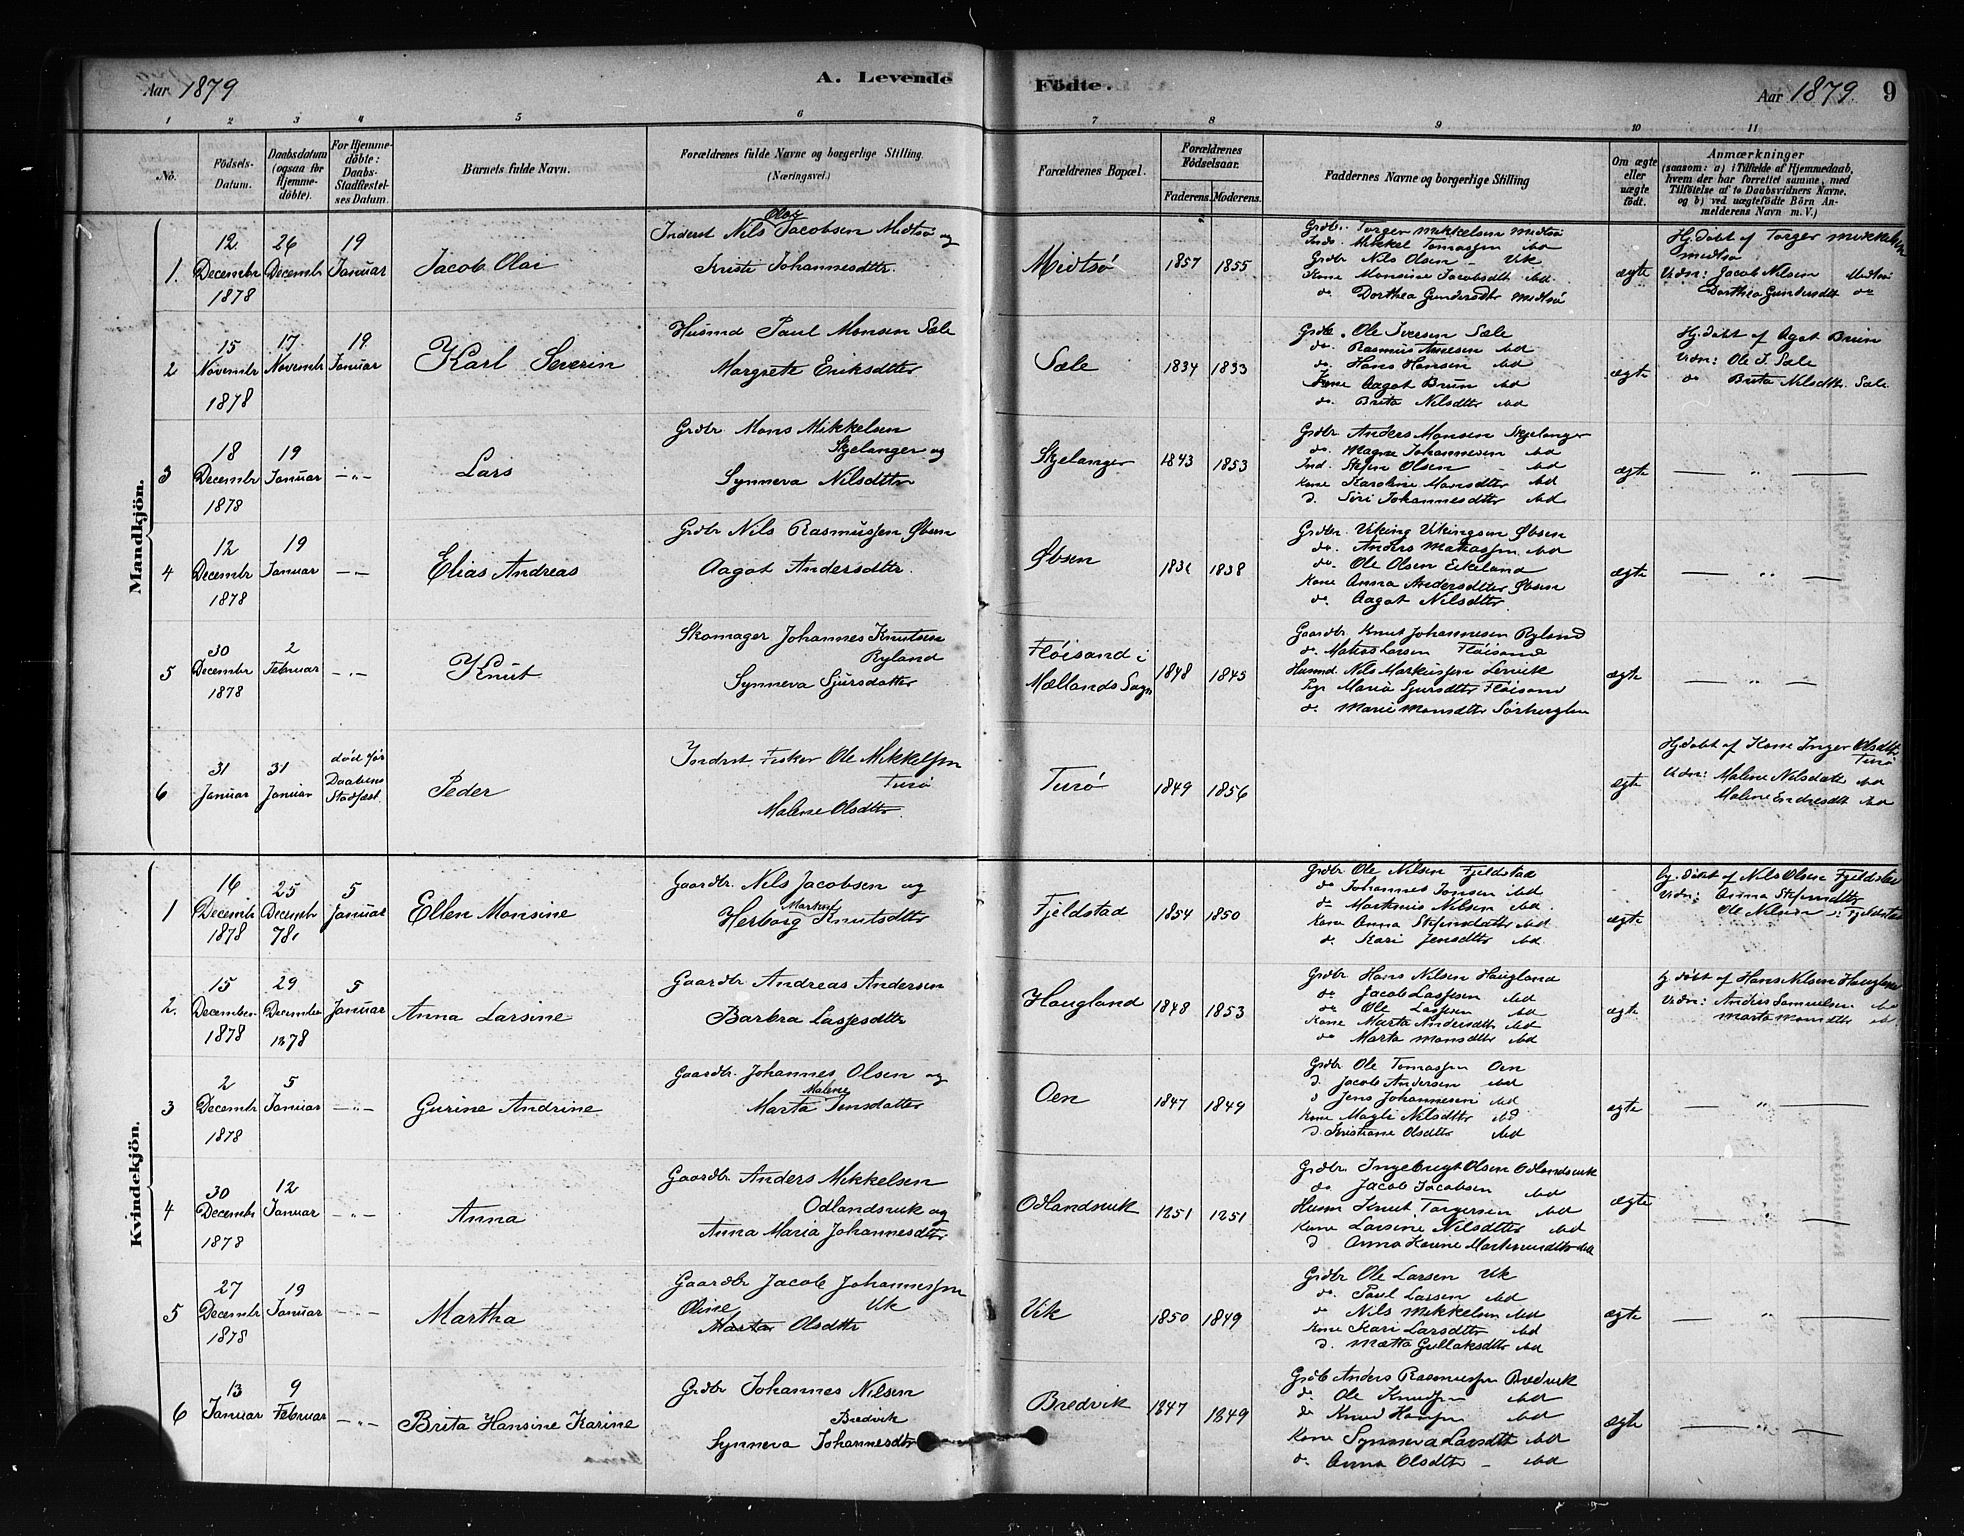 Aar 1879
A. Levende
Födte.
Aar 1879. 9
1 2 3 4 5 6 7 8 9 10 11
No.
Födsels-
Datum.
Daabsdatum
(ogsaa for
Hjemme-
döbte).
For Hjemme-
döbte:
Daabs-
Stadfæstel-
ses Datum.
Barnets fulde Navn.
Forældrenes fulde Navne og borgerlige Stilling.
(Næringsvei.)
Forældrenes Bopæl.
Forældrenes
Födselsaar.
Faderens. Moderens.
Faddernes Navne og borgerlige Stilling
Om ægte
eller
uægte
födt.
Anmærkninger
(saasom: a) i Tilfælde af Hjemmedaab,
hvem der har forrettet samme, med
Tilföielse af to Daabsvidners Navne,
og b) ved uægtefödte Börn An-
melderens Navn m. V.)
Mandkjön.
1.
12
Decembr
1878
26
Decembr
19
Januar
Jacob Olai
Olai
Inderst Nils Jacobsen Midtsø og
Kristi Johannesdttr.
Midtsø
1857 1855
Grdbr. Torger Mikkelsen Midtsø
Inds. Mikkel Tomassen ibd
Grdbr Nils Olsen Vik
Kone Monsine Jacobsdtr ibd.
do Dorthea Gundersdtr Midtsø
ægte
Hj. døbt af Torger Mikkelsen
Midtsø
Vidn: Jacob Nilsen Midtsø
Dorthea Gundersdtr do
2
15
Novembr
1878
17
Novembr
19.
Januar
Karl Severin
Husmd Paul Monsen Sæle
Margrete Eriksdtter
Sæle
1834 1833
Grdb. Ole Iversen Sæle
do. Rasmus Arnesen ibd
do. Hans Hansen ibd
Kone Aagot Brun ibd
do. Brita Nilsdtter ibd
ægte
Hj. døbt af Agot Brun
Vidn: Ole I. Sæle
do Brita Nilsdtr. Sæle
3
18
Decembr
1878
19
Januar
Lars
Grdbr Mons Mikkelsen
Skjelanger og
Synneva Nilsdtter
Skjelanger
1843 1853
Grdbr Anders Monsen Skjelanger
do. Magne Johannesen ibd
Ind. Stefen Olsen ibd
Kone Karoline Monsdtter ibd
d. Siri Johannesdtter ibd
ægte
4
12
Decembr
1878
19
Januar
Elias Andreas
Grdbr Nils Rasmussen Øbsen
Aagot Andersdtter.
Øbsen
1838
Grdbr. Viking Vikingsen Øbsen
do. Anders ibd
do. Ole Olsen Eikeland
Kone Anna Andersdtter Øbsen
do. Aagot Nilsdtter.
ægte
5
30
Decembr
1878
2
Februar
Knut
Skomager Johannes Knutsen
Ryland
Synneva Sjursdatter
Fløisand i
Mællands Sogn
1848 1845
Gaardbr. Knut Johannesen Ryland
do. Matias Larsen Fløisand
Husmd Nils Markussen Lervik
Pge Maria Sjursdtter Fløisand
do. Marie Monsdtter
ægte
6
31
Januar
31
Januar
død før
Daabens
Stadfæst.
Peder
Inderst. Fisker Ole Mikkelsen
Turø
Malene Olsdtter.
Turø
1849 1856
ægte
Hj. døbt af Kone Inger Olsdttr
Turø
Vidn: Malene Nilsdatt ibd
Malene Endresdtr ibd
Kvindekjön.
1
16
Decembr
1878
25
Decembr
78.
5
Januar
Ellen Monsine
Gaardbr. Nils Jacobsen og
Herborg Knutsdtter
Fjeldstad
1854 1850
Grdbr Ole Nilsen Fjeldstad
do Johannes Jonsen ibd.
do Martinus Nilsen ibd.
Kone Anna Stefensdatter ibd
do. Kari Jensdtter ibd.
ægte
Hj. døbt af Nils Olsen Fjeldstad
Vidn: Anna Stefensdtter
Ole Nilsen Fjeldstad
2.
15
December
1878
29
December
1878
5
Januar
Anna Larsine
Gaardbr Andreas Andersen
Barbra Lassesdttr
Haugland
1848 1853
Grdbr Hans Nilsen Haugland
do Jacob Lassesen ibd
do Ole Lassen ibd
Kone Marta Andersdtter ibd
do Marta Monsdtter ibd
ægte
Hj. døbt af Hans Nilsen Haugland
Vidn: Anders Samuelsen ibd
Marta Monsdtr ibd.
3
2
Decembr
1878
5
Januar
Gurine Andrine
Gaardbr. Johannes Olsen og
Malene
Marta Jonsdatter
Oen
1847 1849
Grdbr Ole Tomassen Oen
d. Jacob Andersen ibd
d Jens Johannesen ibd
Kone Magli Nilsdtter ibd
d. Kristiane Olsdtter ibd
ægte
4
30
Decembr
1878
12
Januar
Anna
Gaardbr Anders Mikkelsen
Odlandsvik og
Anna Maria Johannesdtr
Odlandsvik
1851 1851
Grdbr. Ingebrigt Olsen Odlandsvik
do Jacob Jacobsen ibd
Husm Knut Torgersen ibd
Kone Larsine Nilsdtter ibd
d Anna Karine ibd
ægte
5
27
Decembr
1878
19
Januar
Martha
Gaardbr Jacob Johannessen
Oline Vik
Marta Olsdttr
Vik
1850 1849
Grdbr Ole Larsen Vik
do. Paul Lassen ibd
do Nils Mikkelsen ibd
Kone Kari Larsdtter ibd
d. Mætta Gullaksdtter ibd
ægte
6
13
Januar
9
Februar
Brita Hansine Karine
Grdbr Johannes Nilsen
Bredvik
Synneva Johannesdtr
Bredvik
1847 1849
Grdb Anders Rasmussen Bredvik
do. Ole Knudsen ibd
do Knud Hansen ibd
Kone Synneva Larsdttr ibd
do. Anna Olsdtter ibd
ægte